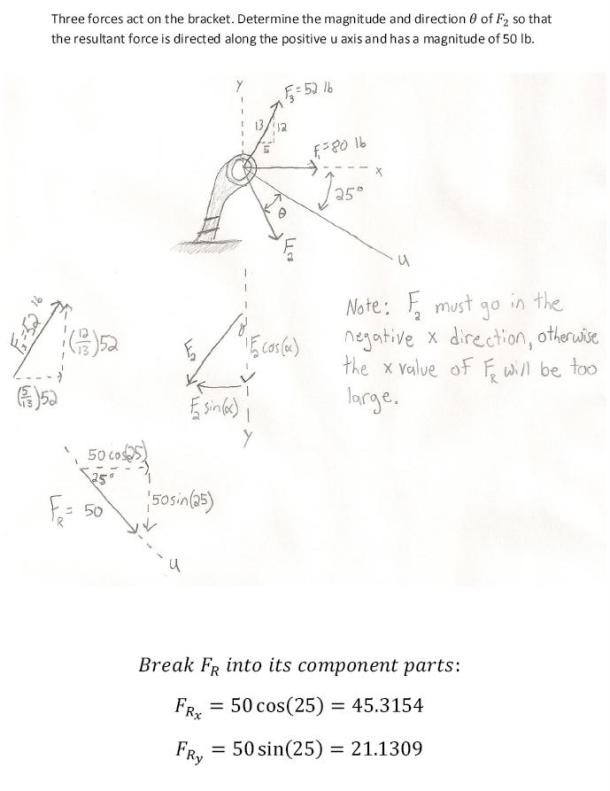 Three forces act on the bracket. Determine the magnitude and direction θ of F₂ so that
the resultant force is directed along the positive u axis and has a magnitude of 50 lb.
y
F₃=52 lb
13
12
5
F₁=80 lb
x
25°
θ
F₂
u
F₃=52 lb
(12/13)52
(5/13)52
F₂
α
F₂cos(α)
F₂ sin(α)
y
Note: F₂ must go in the
negative x direction, otherwise
the x value of F_R will be too
large.
50 cos(25)
25°
F_R = 50
50sin(25)
u
Break F_R into its component parts:
F_Rₓ = 50 cos(25) = 45.3154
F_Rᵧ = 50 sin(25) = 21.1309